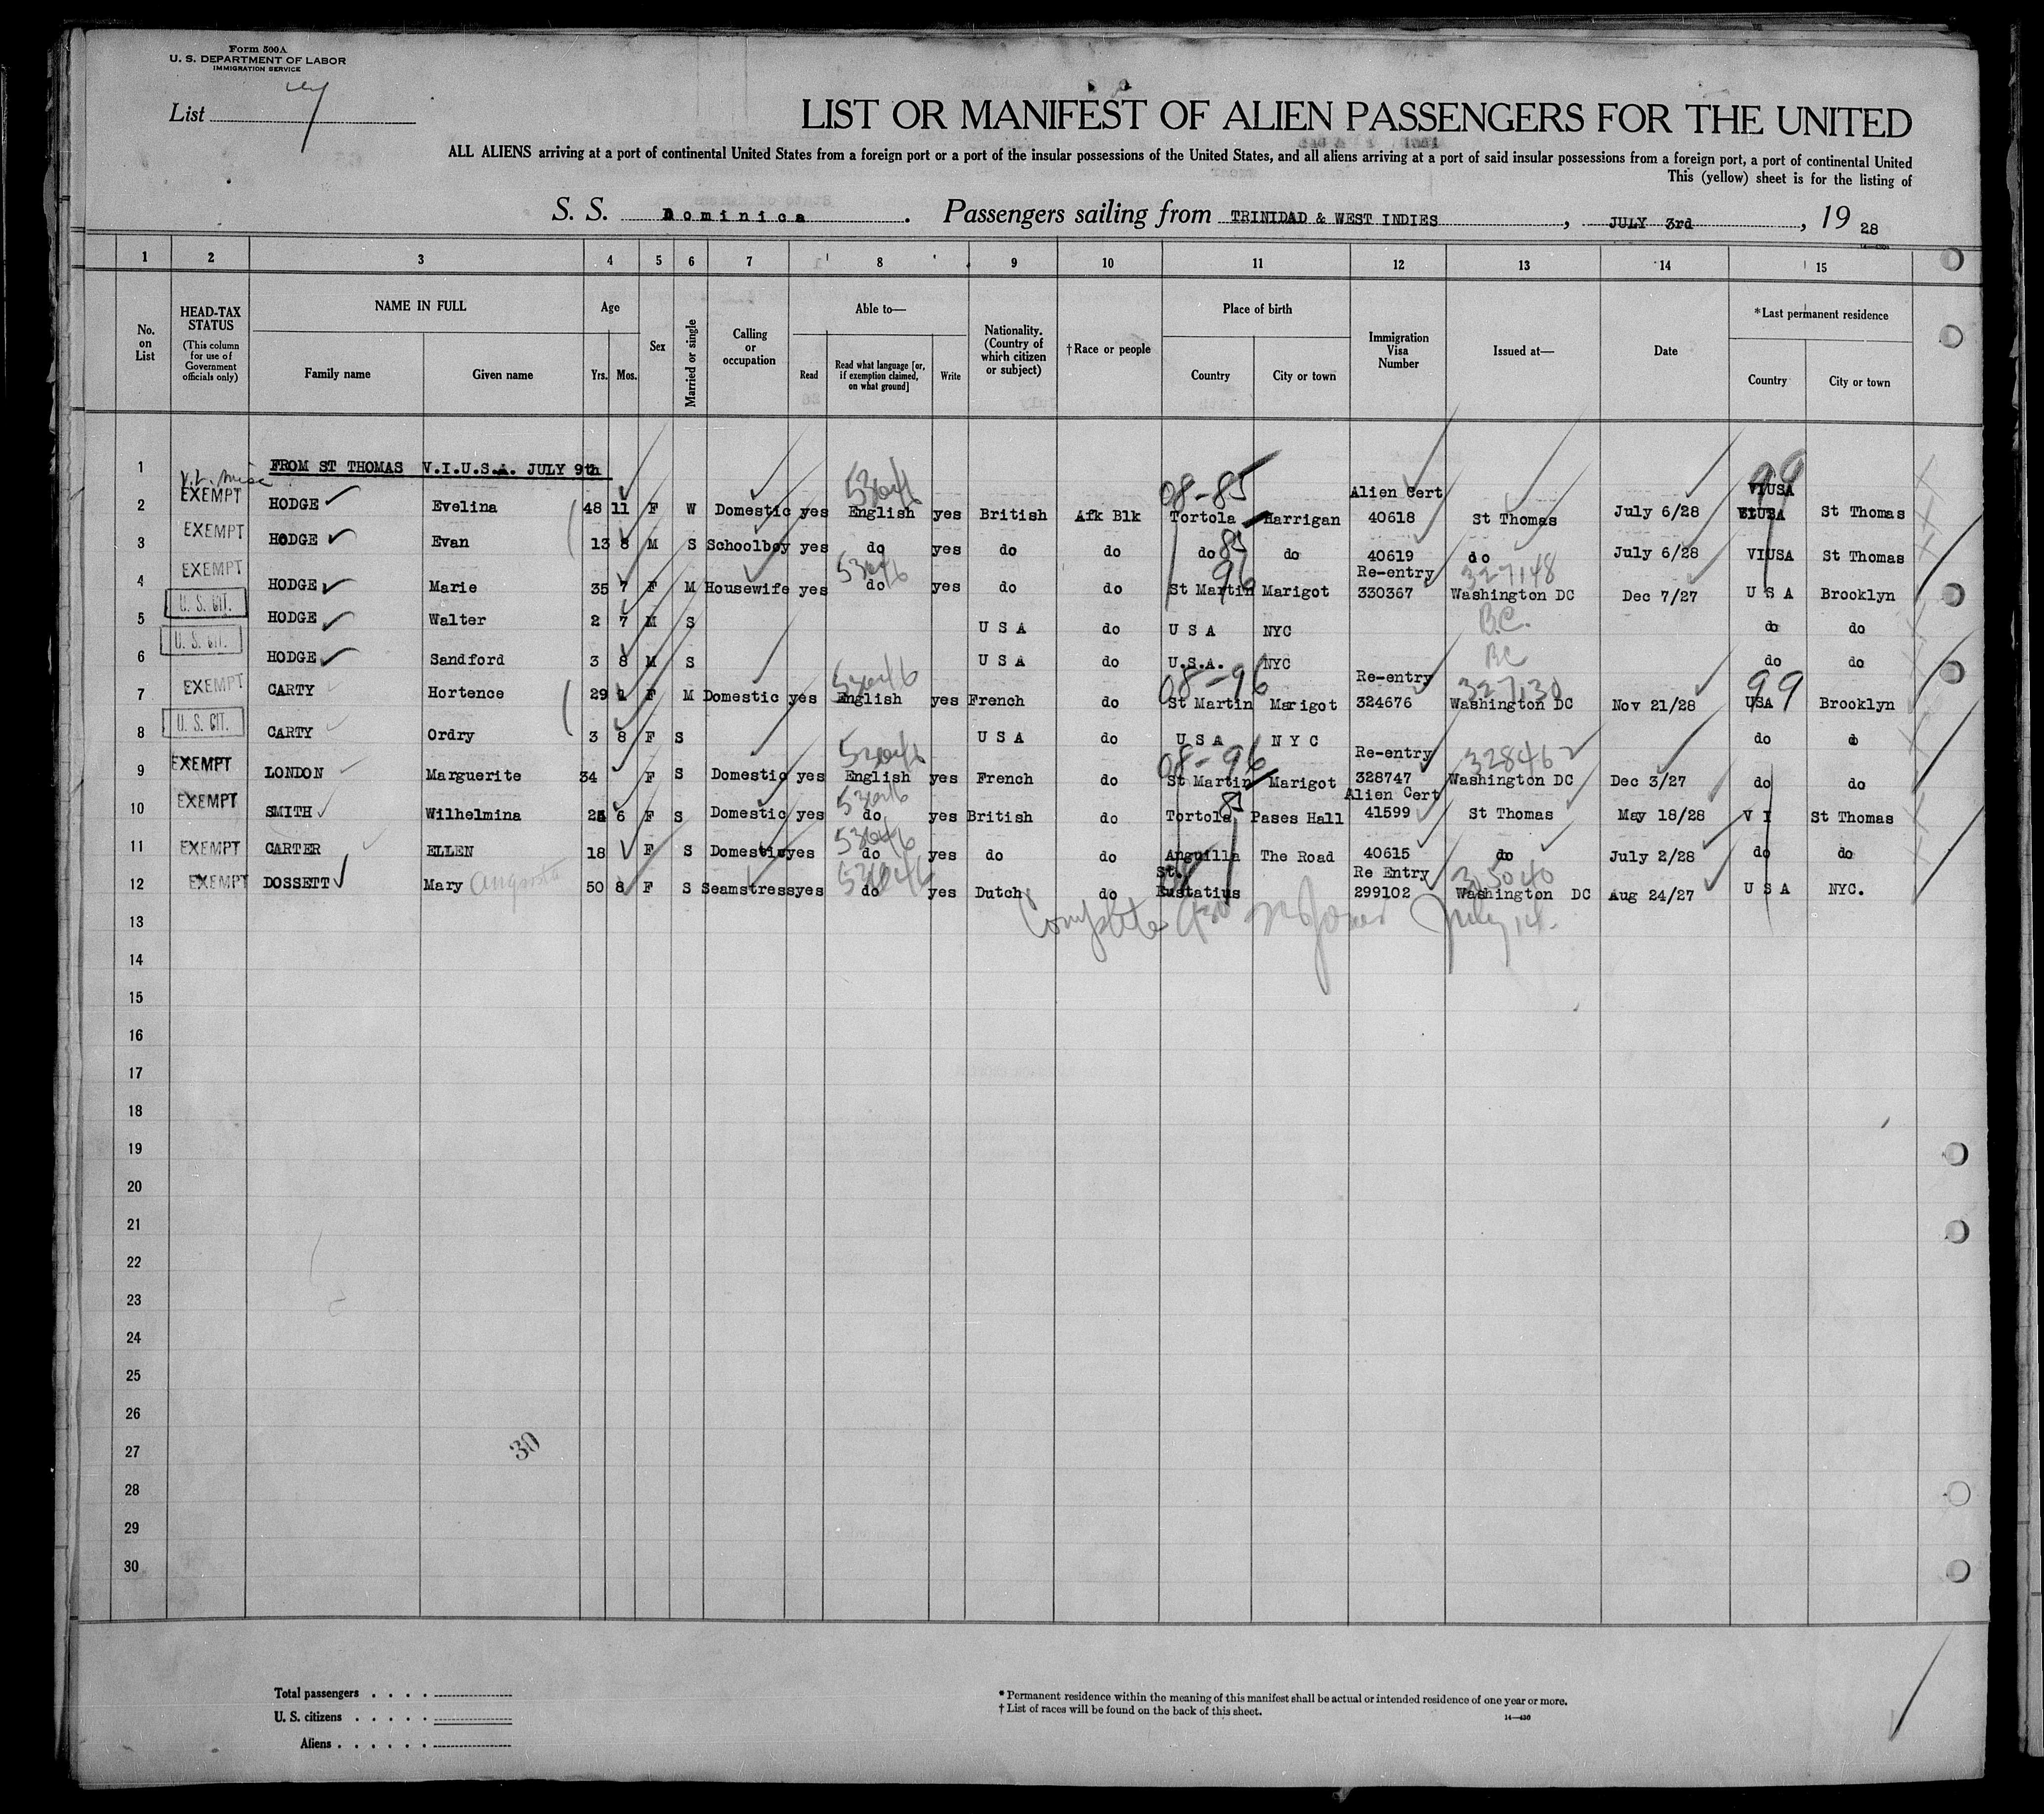 Form 500A
U. S. DEPARTMENT OF LABOR
IMMIGRATION SERVICE
List 7
LIST OR MANIFEST OF ALIEN PASSENGERS FOR THE UNITED
ALL ALIENS arriving at a port of continental United States from a foreign port or a port of the insular possessions of the United States, and all aliens arriving at a port of said insular possessions from a foreign port, a port of continental United
This (yellow) sheet is for the listing of
S. S. Dominica. Passengers sailing from TRINIDAD & WEST INDIES, JULY 3rd, 19 28
1 2 3 4 5 6 7 8 9 10 11 12 13 14 15
No. on List
HEAD-TAX STATUS (This column for use of Government officials only)
NAME IN FULL
Family name Given name
Age
Yrs. Mos.
Sex
Married or single
Calling or occupation
Able to—
Read
Read what language [or, if exemption claimed, on what ground]
Write
Nationality. (Country of which citizen or subject)
† Race or people
Place of birth
Country City or town
Immigration Visa Number
Issued at—
Date
* Last permanent residence
Country City or town
1 FROM ST THOMAS V.I.U.S.A. JULY 9th
2 EXEMPT HODGE Evelina 48 11 F W Domestic yes English yes British Afk Blk 08-85 Tortola Harrigan Alien Cert 40618 St Thomas July 6/28 VIUSA 99 St Thomas
3 EXEMPT HODGE Evan 13 8 M S Schoolboy yes do yes do do do 85 do 40619 do July 6/28 VIUSA St Thomas
4 EXEMPT HODGE Marie 35 7 F M Housewife yes 53046 do yes do do 96 St Martin Marigot Re-entry 330367 327148 Washington DC Dec 7/27 U S A Brooklyn
5 U. S. CIT. HODGE Walter 2 7 M S U S A do U S A NYC B.C. do do
6 U. S. CIT. HODGE Sandford 3 8 M S U S A do U.S.A. NYC BC do do
7 EXEMPT CARTY Hortence 29 1 F M Domestic yes 53046 English yes French do 08-96 St Martin Marigot Re-entry 324676 327130 Washington DC Nov 21/28 99 USA Brooklyn
8 U. S. CIT. CARTY Ordry 3 8 F S U S A do U S A N Y C do do
9 EXEMPT LONDON Marguerite 34 F S Domestic yes 53046 English yes French do 08-96 St Martin Marigot Re-entry 328747 328462 Washington DC Dec 3/27 do do
10 EXEMPT SMITH Wilhelmina 6 F S Domestic yes 53046 do yes British do 85 Tortola Pases Hall Alien Cert 41599 St Thomas May 18/28 V I St Thomas
11 EXEMPT CARTER ELLEN 18 F S Domestic yes 53046 do yes do do Anguilla The Road 40615 do July 2/28 do do
12 EXEMPT DOSSETT Mary Augusta 50 8 F S Seamstress yes 53046 do yes Dutch do St. Eustatius Re Entry 299102 305040 Washington DC Aug 24/27 U S A NYC.
13 Complete July 14.
14
15
16
17
18
19
20
21
22
23
24
25
26
27
28
29
30
30
Total passengers . . . .
U. S. citizens . . . . .
Aliens . . . . . .
* Permanent residence within the meaning of this manifest shall be actual or intended residence of one year or more.
† List of races will be found on the back of this sheet.
14—430